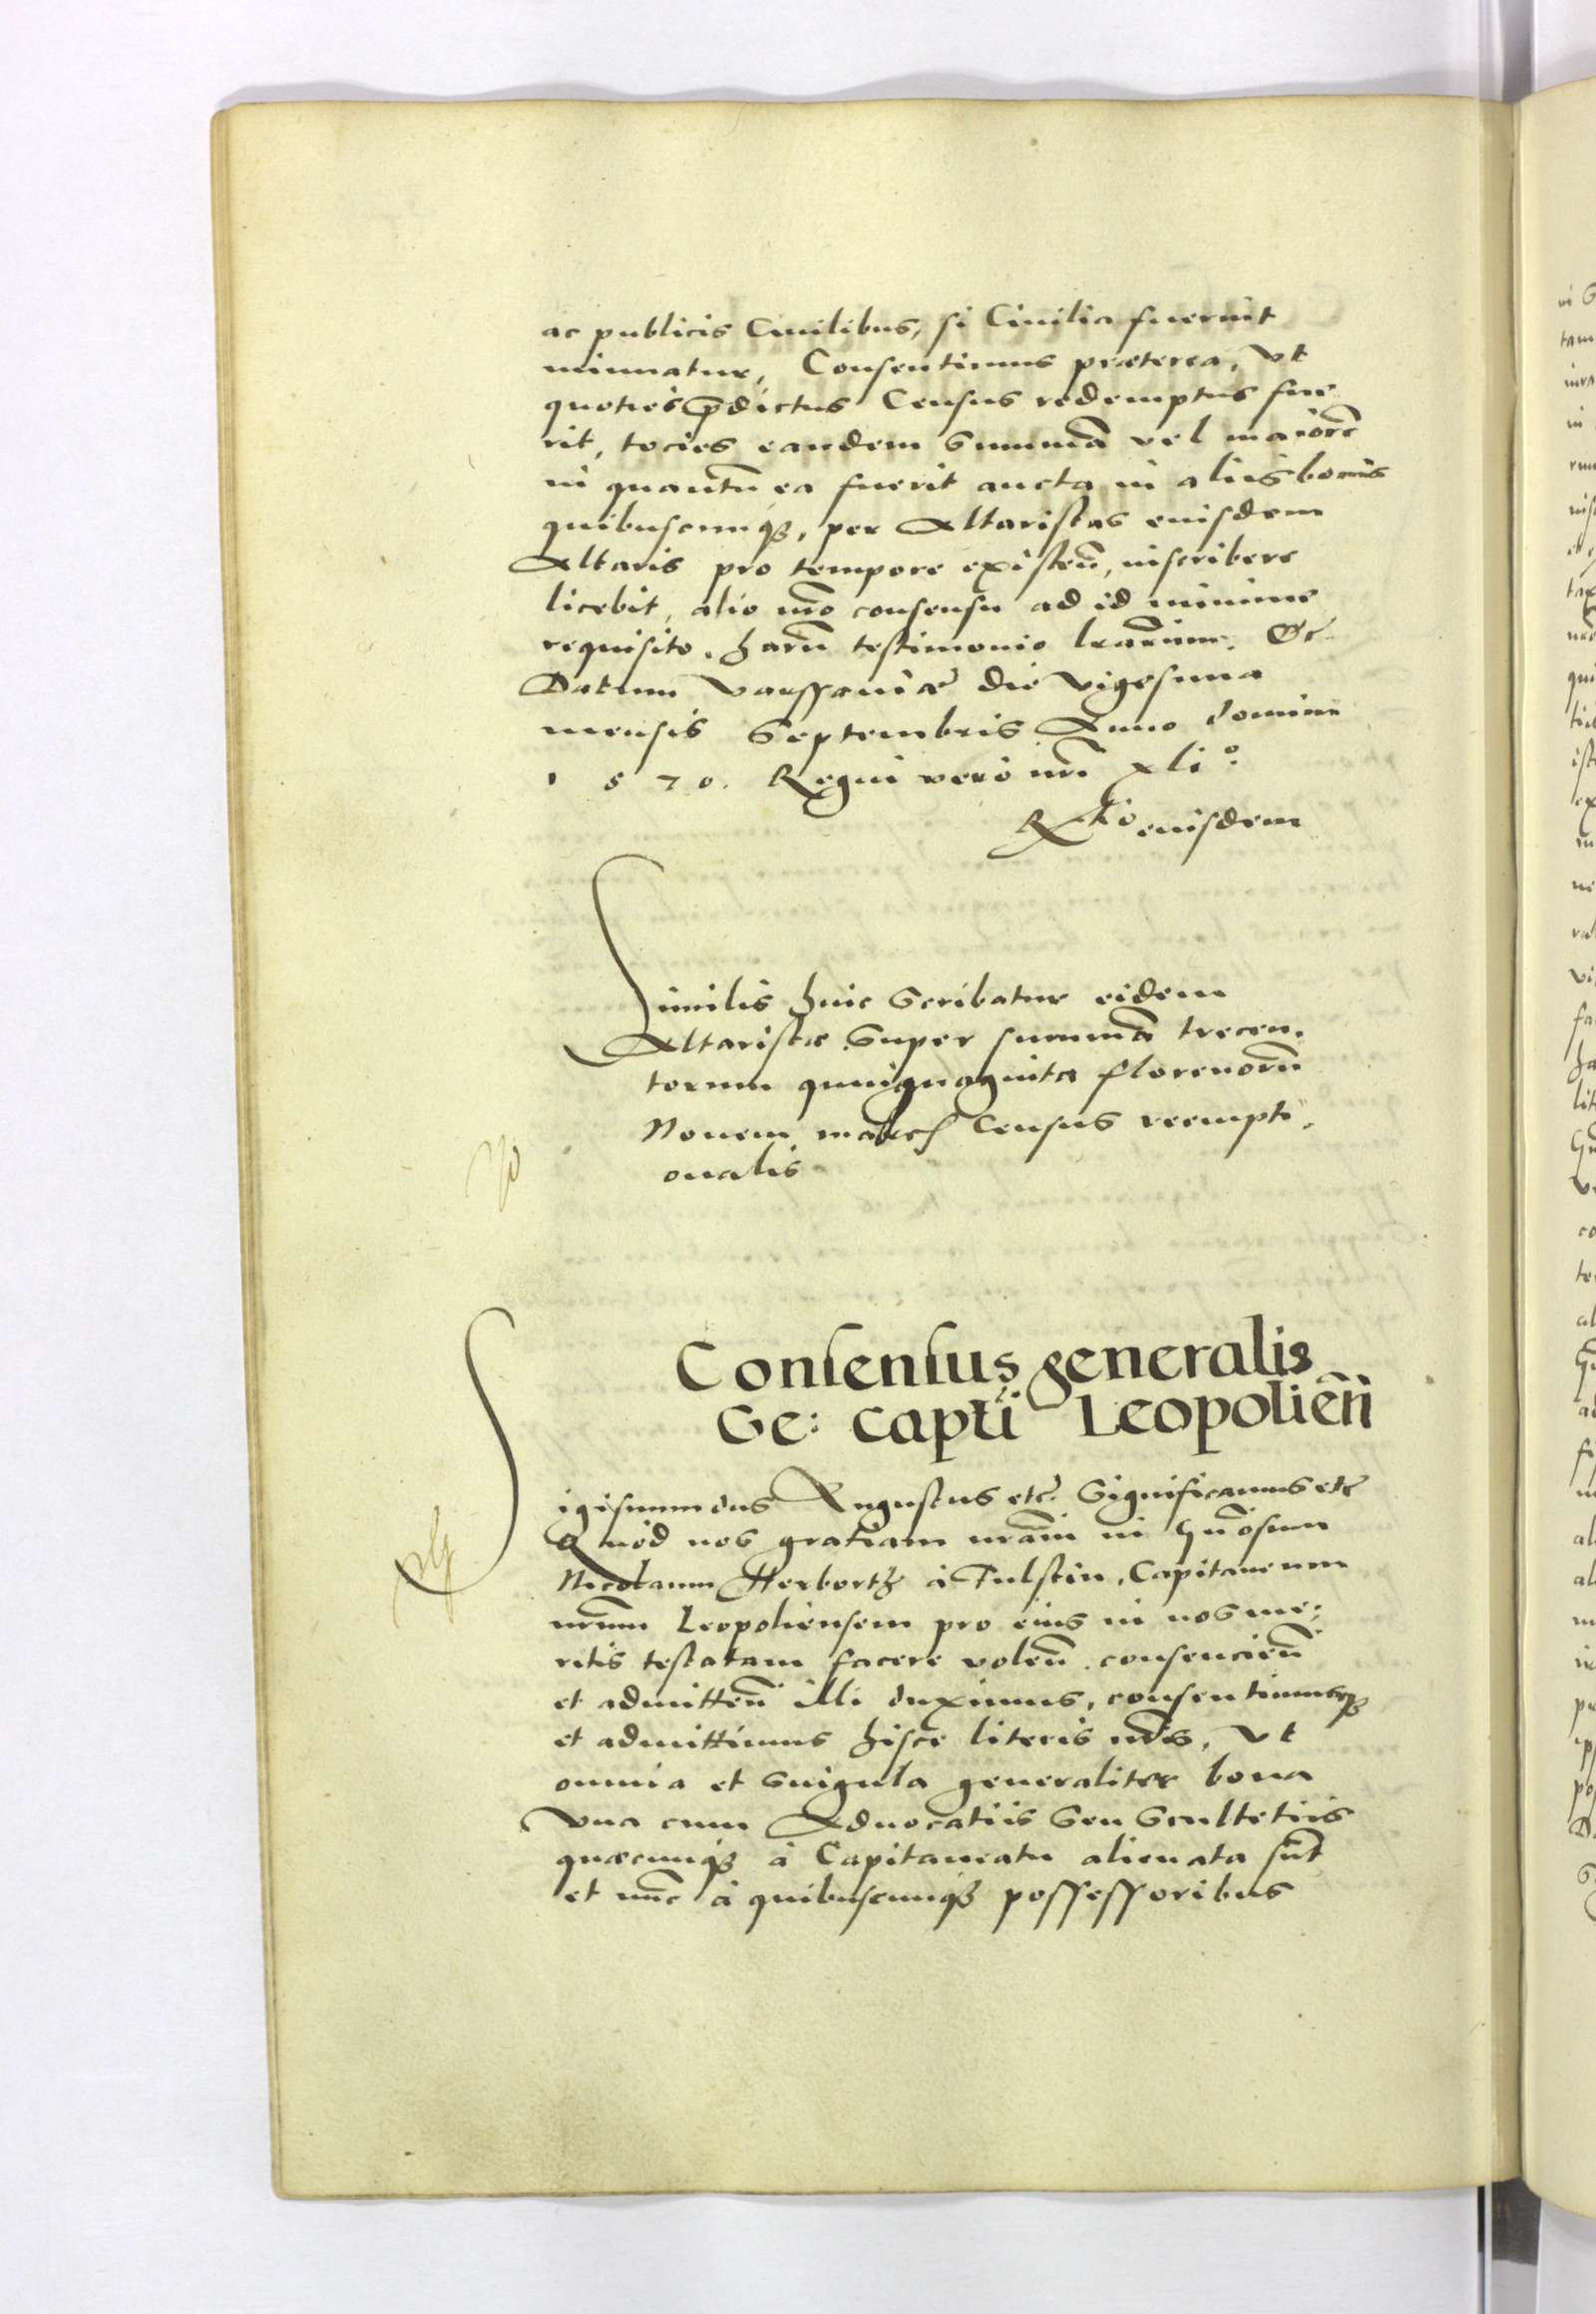 ac publicis Ciuilibus, si Ciuilia fuerint
minuatur, Consentimus præterea, vt
quoties p̄dictus Census redemptus fue
rit, tocies eandem Summā vel maiorē
in quantū ea fuerit aucta in aliis bonis
quibuscunqꝫ, per Altaristas eiusdem
Altaris pro tempore existeñ, inscribere
licebit, alio nr̄o consensu ad id minime
requisito. harū testimonio lrarum. Etc̄
Datum Varssauiæ die vigesima
mensis Septembris Anno domini
1570. Regni vero nrī xli°.
Rtio eiusdem
Similis huic Scribatur eidem
Altaristæ Super summā trecen,
torum quinquaginta florenorū
Nouem march Census reempti,
onalis
Consensus generalis
Ge: capti Leopolieñ
Sigismundus Augustus etc̄. Significamus etc̄
Quod nos gratiam nrām in Gn̄osum
Nicolaum Herbortꝫ à Fulstin, Capitaneum
nrūm Leopoliensem pro eius in nos me:
ritis testatam facere voleñ. consencieñ
et admitteñ illi duximus, consentimusqꝫ
et admittimus hisce literis nrīs, vt
omnia et Singula generaliter bona
Vna cum Aduocatiis Seu Scultetiis
quæcunqꝫ à Capitaneatu alienata sūt
et nūc à quibuscunqꝫ possessoribus